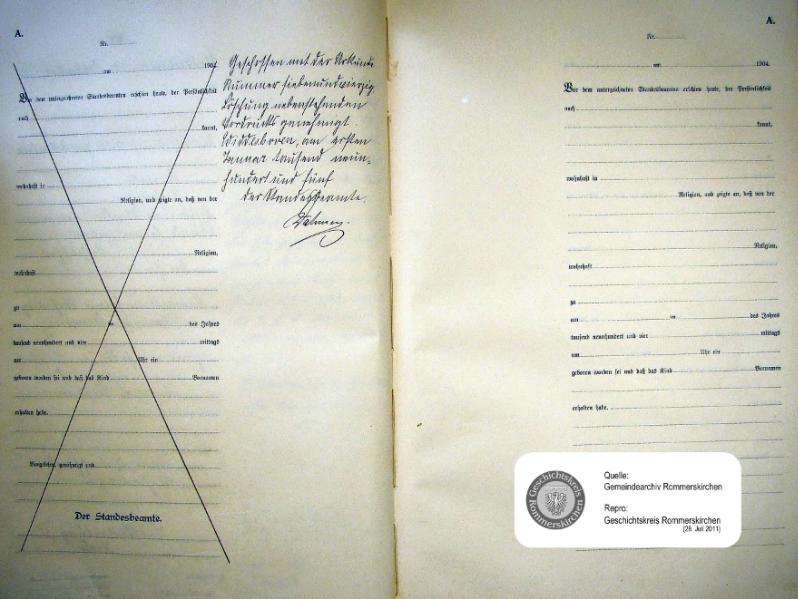 A.
Nr.
am 1904.
Vor dem unterzeichneten Standesbeamten erschien heute, der Persönlichkeit
nach
kannt,
wohnhaft in
Religion, und zeigte an, daß von der
Religion,
wohnhaft
zu
am im des Jahres
tausend neunhundert und vier mittags
um Uhr ein
geboren worden sei und daß das Kind Vornamen
erhalten habe.
Vorgelesen, genehmigt und
Der Standesbeamte.
Geschlossen mit der Urkunde
Nummer siebenundvierzig
Löschung nebenstehenden
Vordrucks genehmigt.
am ersten
Januar tausend neun-
hundert und fünf
der Standesbeamte.
A.
Nr.
am 1904.
Vor dem unterzeichneten Standesbeamten erschien heute, der Persönlichkeit
nach
kannt,
wohnhaft in
Religion, und zeigte an, daß von der
Religion,
wohnhaft
zu
am im des Jahres
tausend neunhundert und vier mittags
um Uhr ein
geboren worden sei und daß das Kind Vornamen
erhalten habe.
Geschichtskreis
Rommerskirchen
Quelle:
Gemeindearchiv Rommerskirchen
Repro:
Geschichtskreis Rommerskirchen
(28. Juli 2011)